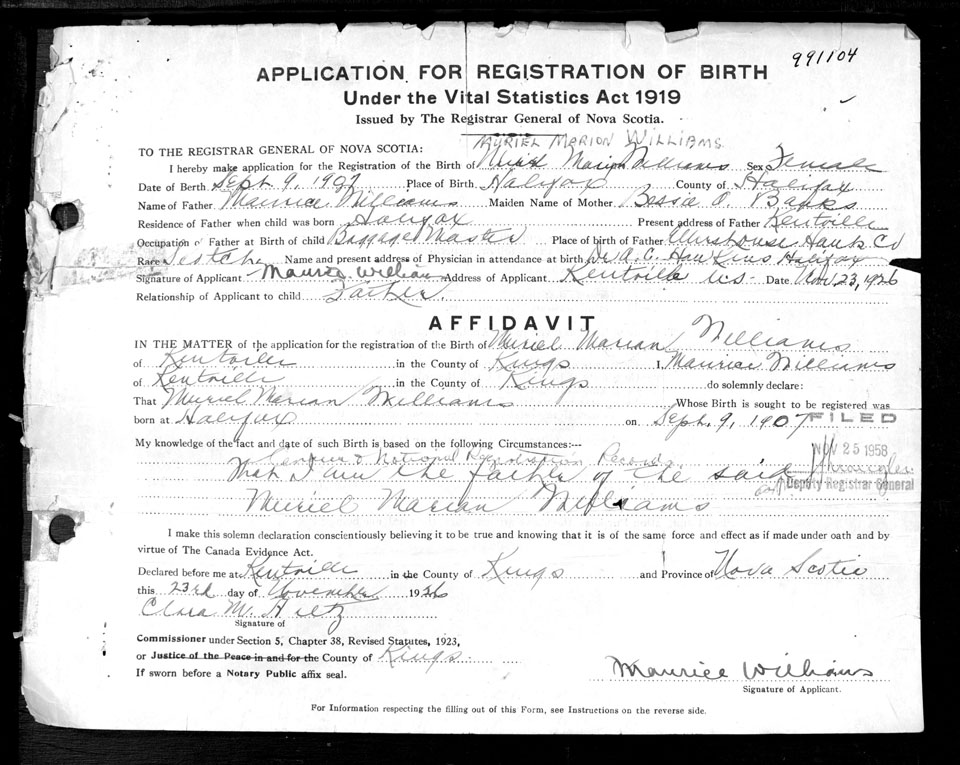 991104
APPLICATION FOR REGISTRATION OF BIRTH
Under the Vital Statistics Act 1919
Issued by The Registrar General of Nova Scotia.
MURIEL MARION WILLIAMS
TO THE REGISTRAR GENERAL OF NOVA SCOTIA:
I hereby make application for the Registration of the Birth of Muriel Marion Williams Sex Female
Date of Birth Sept. 9, 1907 Place of Birth Halifax County of Halifax
Name of Father Maurice Williams Maiden Name of Mother Bessie O. Banks
Residence of Father when child was born Halifax Present address of Father Kentville
Occupation of Father at Birth of child Baggage Master Place of birth of Father Hants Co
Race Scotch Name and present address of Physician in attendance at birth Dr. A. C. Hawkins Halifax
Signature of Applicant Maurice William Address of Applicant Kentville N.S. Date Nov. 23, 1926
Relationship of Applicant to child Father.
AFFIDAVIT
IN THE MATTER of the application for the registration of the Birth of Muriel Marian Williams
of Kentville in the County of Kings I, Maurice Williams
of Kentville in the County of Kings do solemnly declare:
That Muriel Marian Williams Whose Birth is sought to be registered was
born at Halifax on Sept. 9, 1907
FILED
My knowledge of the fact and date of such Birth is based on the following Circumstances:---
NOV 25 1958
Census & National Registration Records
That I am the father of the said
Deputy Registrar General
Muriel Marian Williams
I make this solemn declaration conscientiously believing it to be true and knowing that it is of the same force and effect as if made under oath and by
virtue of The Canada Evidence Act.
Declared before me at Kentville in the County of Kings and Province of Nova Scotia
this 23rd day of November 1926
Clara M. Hiltz
Signature of
Commissioner under Section 5, Chapter 38, Revised Statutes, 1923,
or Justice of the Peace in and for the County of Kings
If sworn before a Notary Public affix seal.
Maurice Williams
Signature of Applicant.
For Information respecting the filling out of this Form, see Instructions on the reverse side.